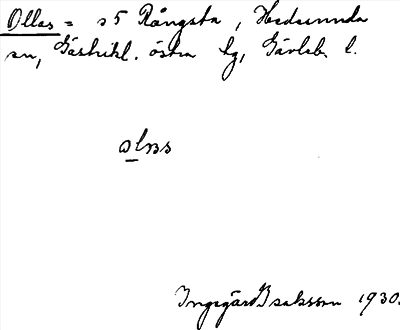 Ollas = s 5 Rångsta, Hedesunda
sn, Gästrikl. östra tg, Gävleb. l.
olas
Ingegärd Isaksson 1930.